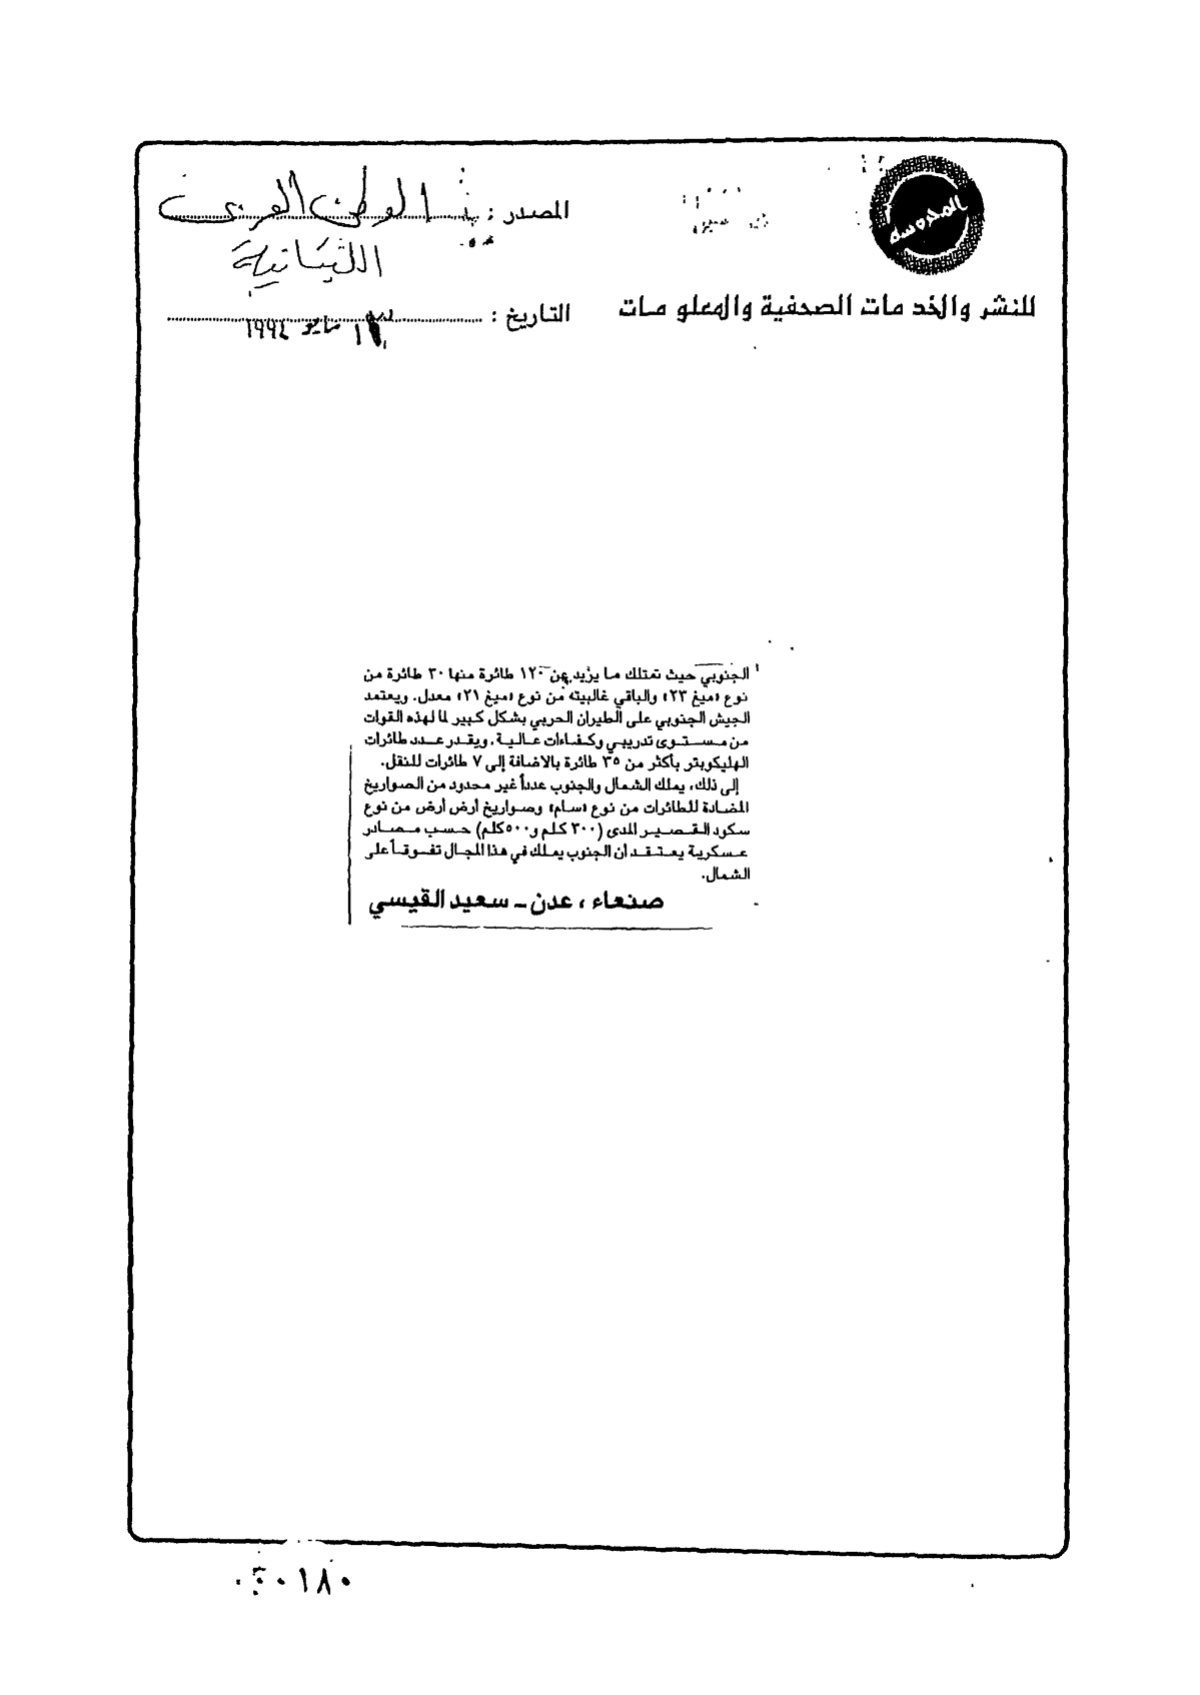 المحروسة
للنشر والخدمات الصحفية والمعلومات
المصدر : الوطن العربي
اللبنانية
التاريخ : مايو ١٩٩٤
الجنوبي حيث تمتلك ما يزيد عن ١٢٠ طائرة منها ٣٠ طائرة من
نوع «ميغ ٢٣» والباقي غالبيته من نوع «ميغ ٢١» معدل. ويعتمد
الجيش الجنوبي على الطيران الحربي بشكل كبير لما لهذه القوات
من مستوى تدريبي وكفاءات عالية. ويقدر عدد طائرات
الهليكوبتر بأكثر من ٣٥ طائرة بالاضافة إلى ٧ طائرات للنقل.
إلى ذلك، يملك الشمال والجنوب عدداً غير محدود من الصواريخ
المضادة للطائرات من نوع «سام» وصواريخ أرض أرض من نوع
سكود القصير المدى (٣٠٠ كلم و٥٠٠ كلم) حسب مصادر
عسكرية يعتقد أن الجنوب يملك في هذا المجال تفوقاً على
الشمال.
صنعاء ، عدن - سعيد القيسي